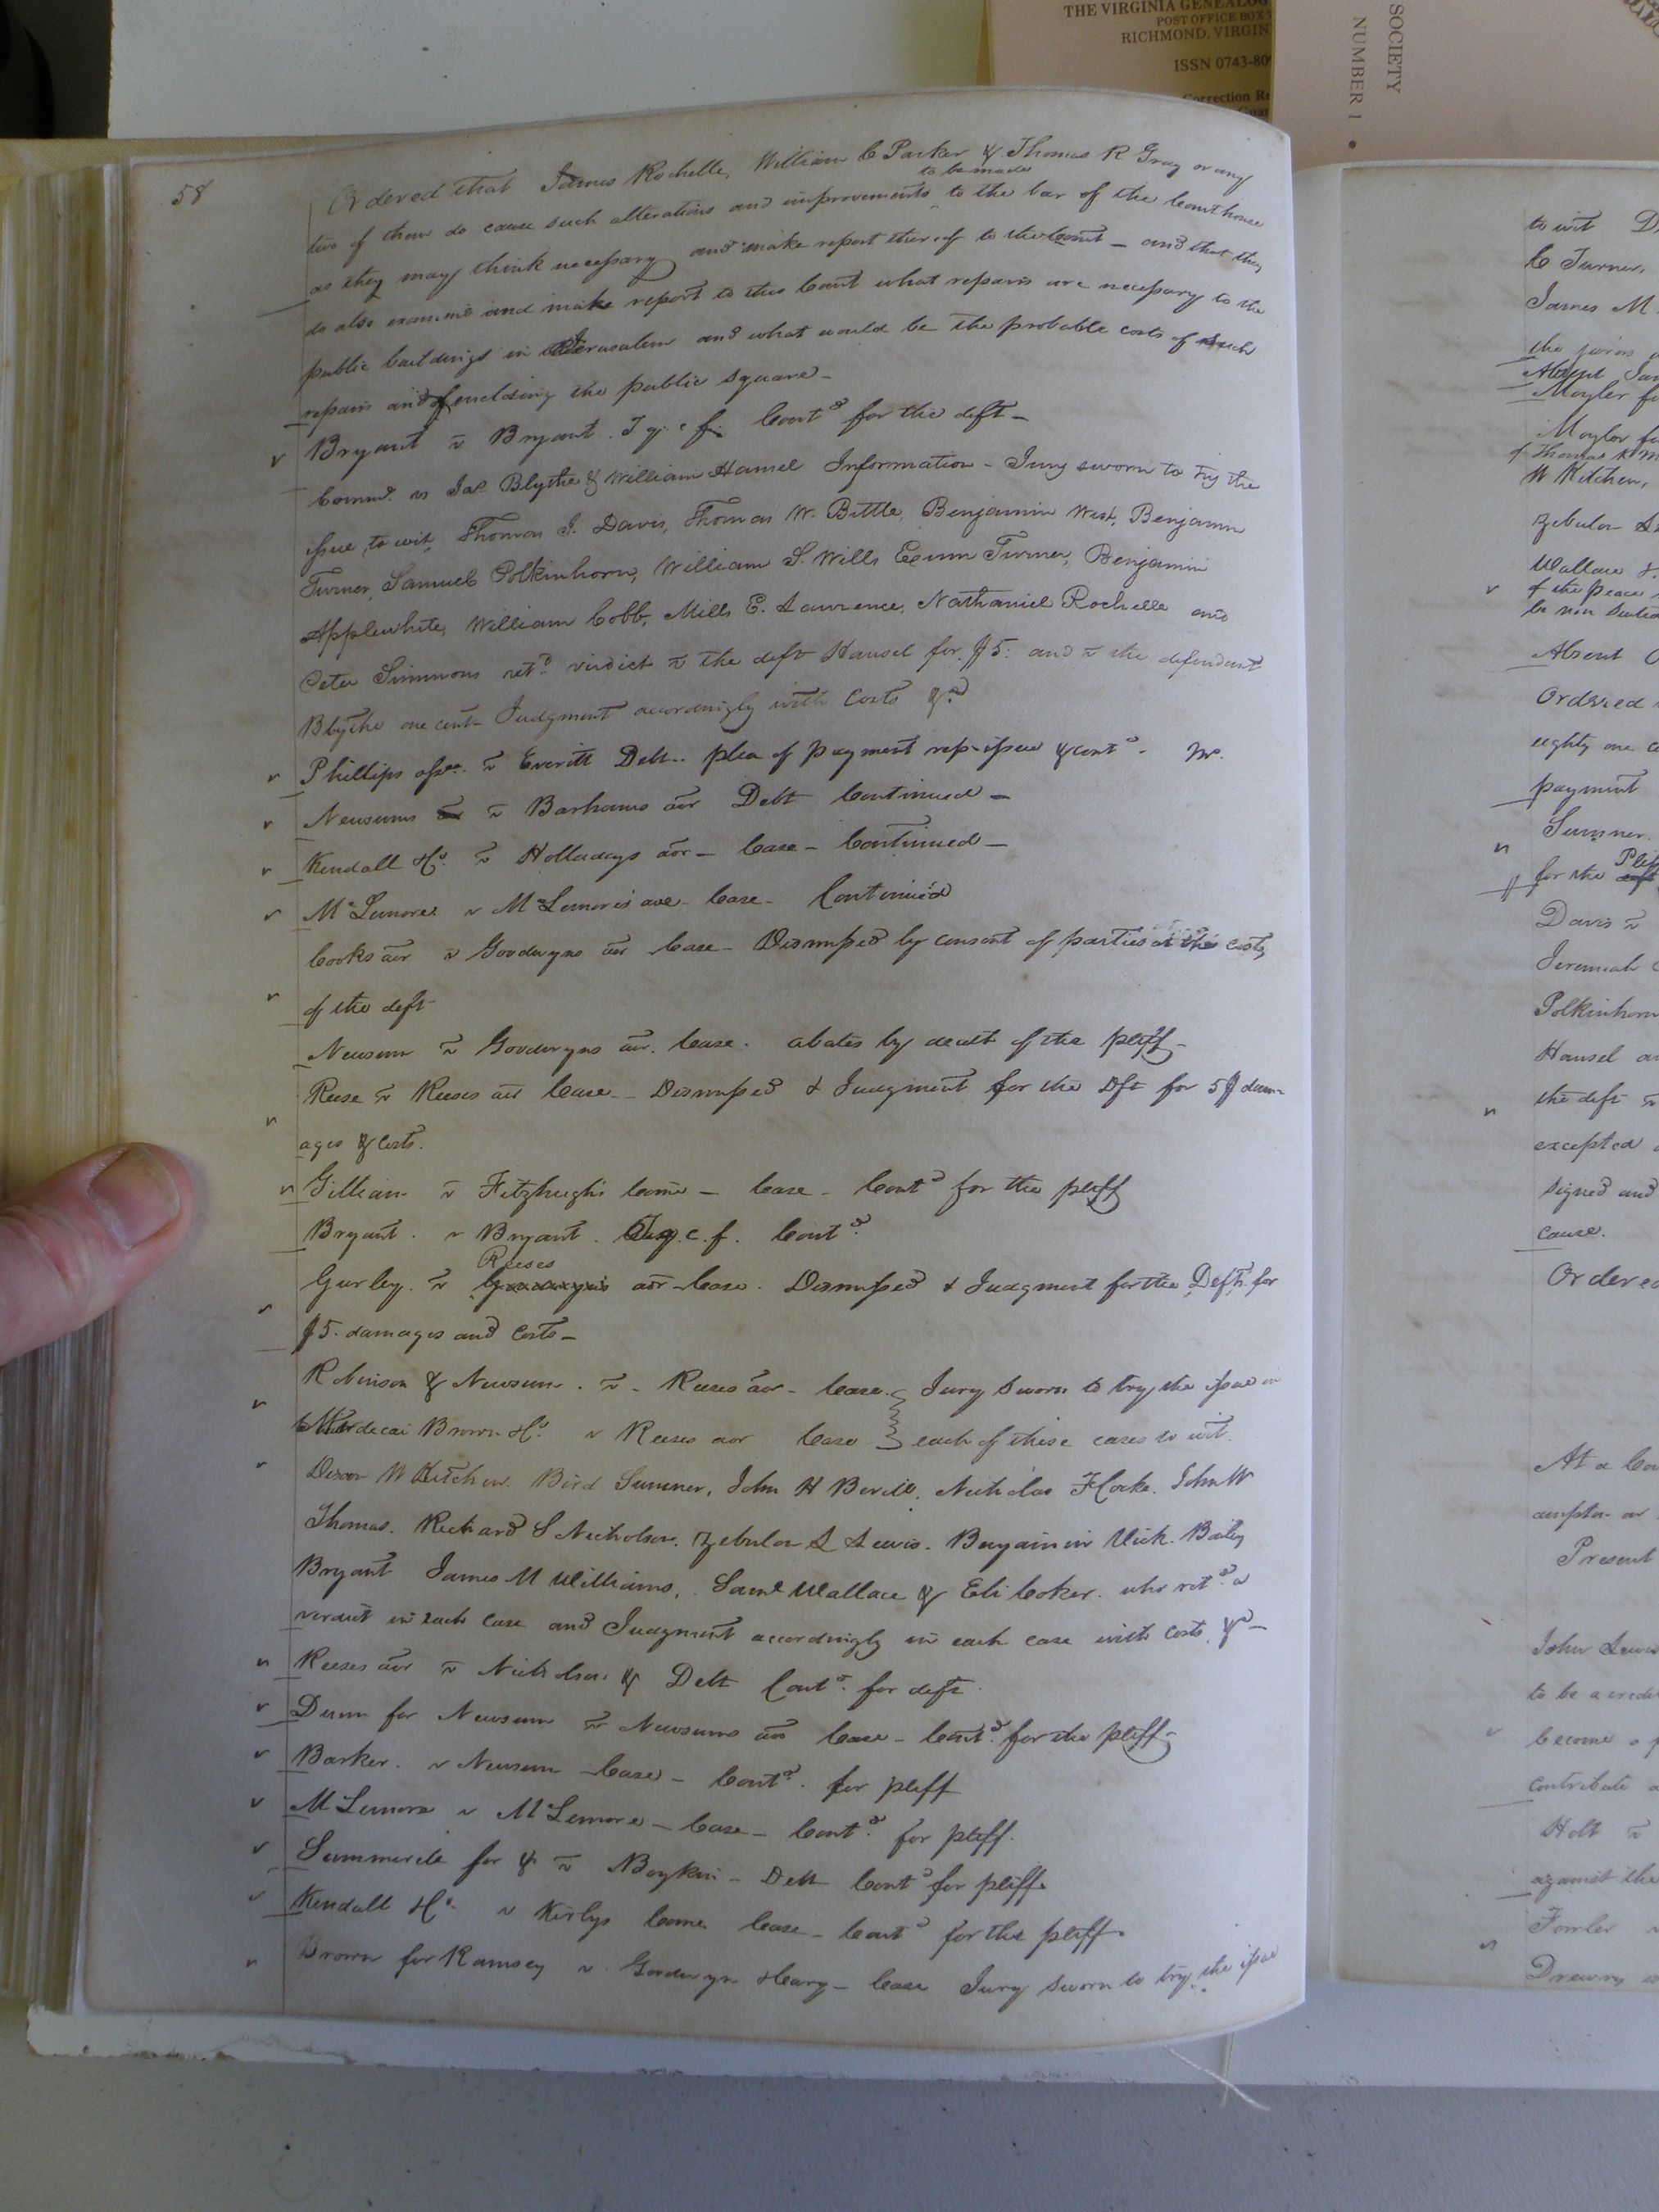 THE VIRGINIA GENEALOG
POST OFFICE BOX
RICHMOND, VIRGIN
ISSN 0743-80
Correction R
Guar
SOCIETY
NUMBER 1
58
Ordered that James Rochelle, William C Parker & Thomas R Gray or any
to be made
two of them do cause such alterations and improvements to the bar of the Courthouse
as they may think necessary and make report thereof to the Court - and that they
do also examine and make report to this Court what repairs are necessary to the
public buildings in Jerusalem and what would be the probable costs of such
repairs and of enclosing the public square -
Bryant v Bryant. I q. c f. Contd for the deft -
Commw. vs Jas. Blythe & William Hansel Information - Jury sworn to try the
issue to wit, Thomas J. Davis, Thomas W. Bittle, Benjamin West, Benjamin
Turner, Samuel Polkinhorn, William S. Wills Exum Turner, Benjamin
Applewhite, William Cobb, Mills E. Lawrence, Nathaniel Rochelle and
Peter Simmons retd verdict v the deft Hansel for $5: and v the defendant
Blythe one cent Judgment accordingly with Costs &c
Phillips assee. v Everitt Debt.. plea of payment rep. issue & contd.
Newsums v Barhams aor Debt Continued -
Kendall & Co. v Holladays aor - Case - Continued -
McLemore v McLemores aor - Case - Continued
Cooks aor v Goodwyns aor Case - Dismissed by consent of parties at the costs
of the deft
Newsum v Goodwyns aor. Case. abates by death of the pltff -
Reese v Reeses aor Case - Dismissed & Judgment for the Dft for 5$ dam-
ages & Costs.
Gilliam v Fitzhugh's Come - Case - Contd for the pltff
Bryant. v Bryant. I q. c. f. Contd
Reeses
Gurley. v Goodwyns aor Case. Dismissed & Judgment for the Deft. for
$5. damages and Costs -
Robinson & Newsum. v - Reeses aor - Case. Jury sworn to try the issue in
Mordecai Brown & Co. v Reeses aor Case each of these cases to wit.
Dixon W Kitchen. Bird Sumner, John H Barill. Nicholas F Cocke. John W
Thomas. Richard S Nicholson. Zebulon S Lewis. Benjamin Vick. Bailey
Bryant James M Williams, Saml Wallace & Eli Coker. who retd a
verdict in each case and Judgment accordingly in each case with costs &c -
Reeses aor v Nicholson & Debt Contd. for deft.
Dunn for Newsum v Newsums aor Case - Contd. for the pltff -
Barker. v Newsum - Case - Contd. for pltff
McLemore v McLemore - Case - Contd. for pltff.
Summerell for & v Boykin - Debt Contd for pltff.
Kendall & Co. v Kirbys Come Case - Contd for the pltff.
Brown for Ramsey v. Goodwyn & Harg - Case Jury sworn to try the issue
to wit
C Turner,
James M
the jurors
Absent Jam
Moyler
Moyler for
of Thomas
W Kitchen,
Zebulon
Wallace
of the peace
be non suited
Absent
Ordered
eighty one
payment
Sumner.
Pltff
for the
Davis v
Jeremiah
Polkinhorn
Hansel
the deft v
excepted
signed and
cause.
Ordered
At a Cou
ampton on
Present
John Lewis
to be a
become a
contribute
Holt v
against the
Fowler v
Drewry